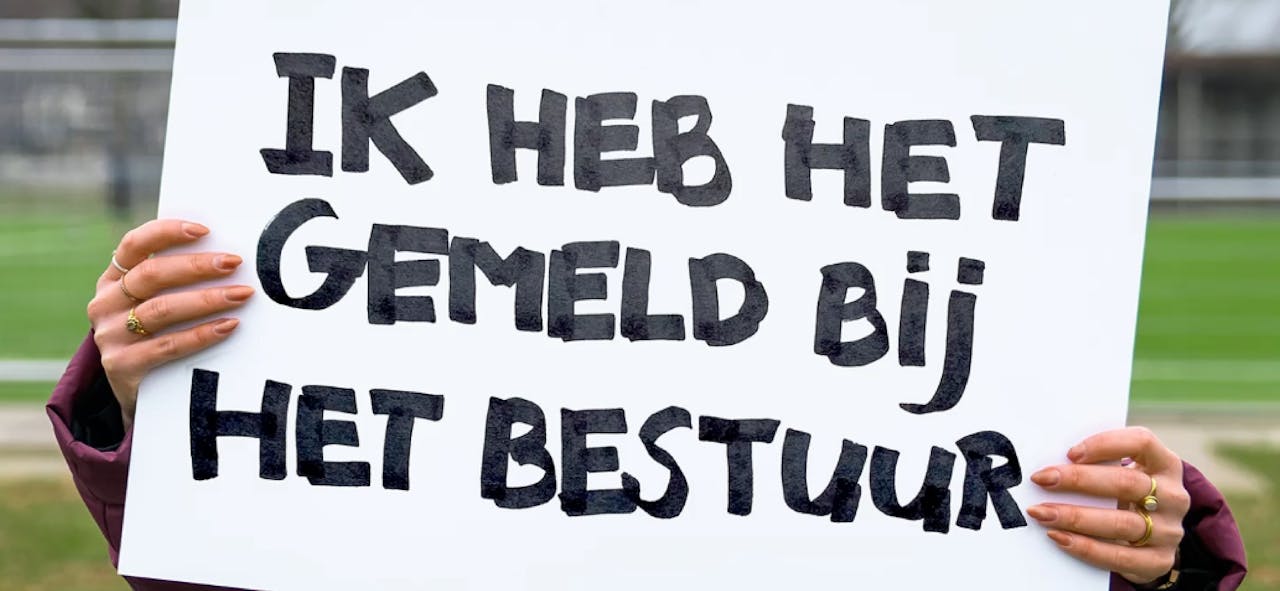 IK HEB HET
GEMELD BIJ
HET BESTUUR